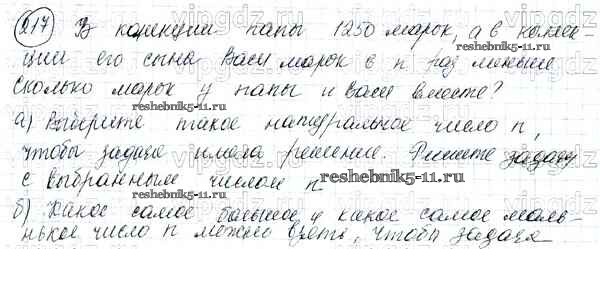 217 В колекции папы 1250 марок, а в коллек-
ции его сына Васи марок в n раз меньше.
Сколько марок у папы и Васи вместе?
а) Выберите такое натуральное число n,
чтобы задача имела решение. Решите задачу
с выбранным числом n.
б) Какое самое большое и какое самое мале-
нькое число n можно взять, чтобы задача
reshebnik5-11.ru
reshebnik5-11.ru
reshebnik5-11.ru
vipgdz
vipgdz